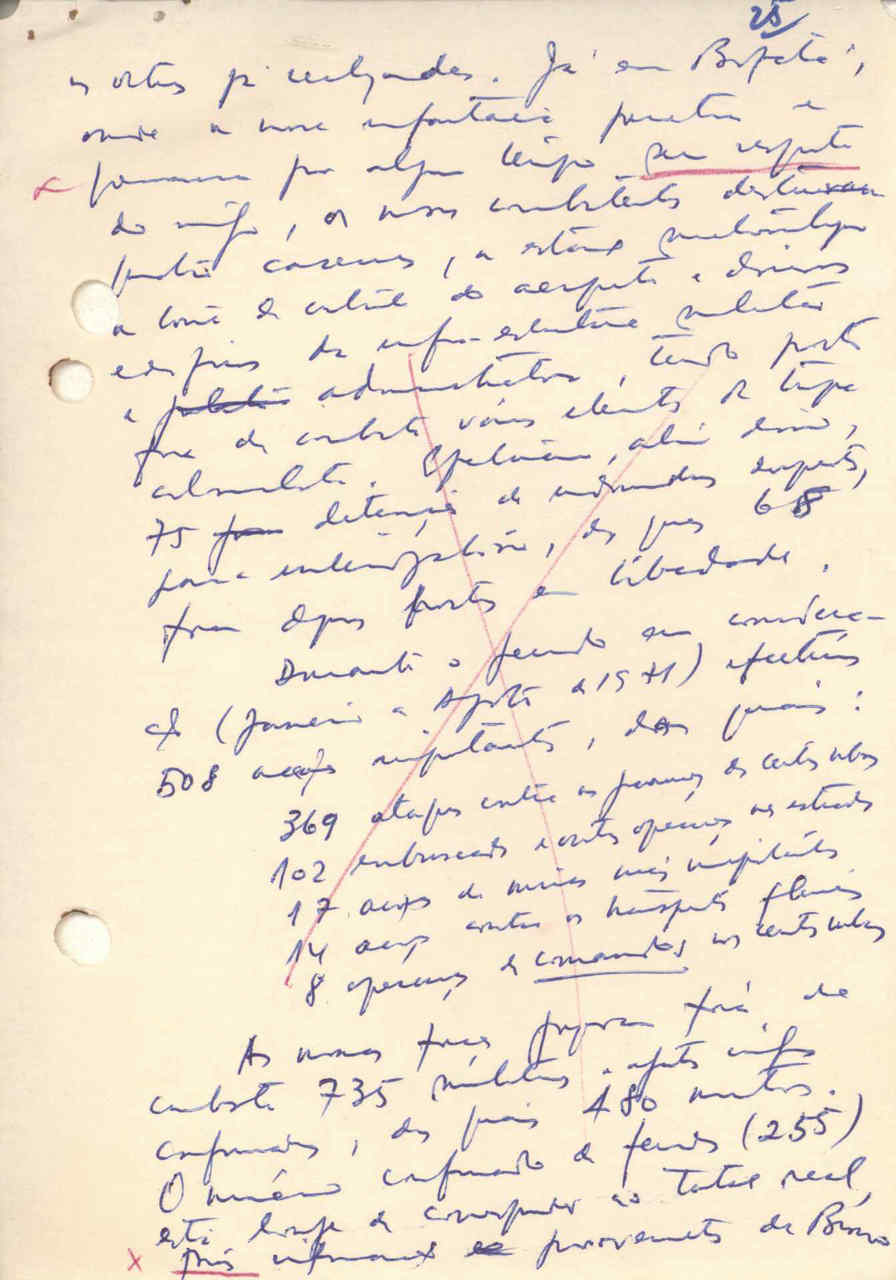 25
os outros já realizados. Já em Bafatá,
onde a nossa infantaria penetrou e
permaneceu por algum tempo sem resposta
do inimigo, os nossos combatentes destruiram
quatro casernas, a estação meteorológica
a torre de controle do aeroporto e diversos
edifícios da infra-estrutura militar
e administrativa, tendo posto
fora de combate vários elementos da tropa
colonialista. Efectuaram, além disso,
75 detenções de indivíduos suspeitos,
para interrogatório, dos quais 68
foram depois postos em liberdade.
Durante o período em considera-
ção (Janeiro a Agosto de 1971) efectuámos
508 acções importantes, das quais:
369 ataques contra as posições dos centros urbanos
102 emboscadas e outras operações nas estradas
17 acções de minas mais importantes
14 acções contra os transportes fluviais
8 operações de comandos nos centros urbanos
As nossas forças puseram fora de
combate 735 militares e agentes inimigos
confirmados, dos quais 480 mortos.
O número confirmado de feridos (255)
está longe de corresponder ao total real,
pois informações provenientes de Bissau